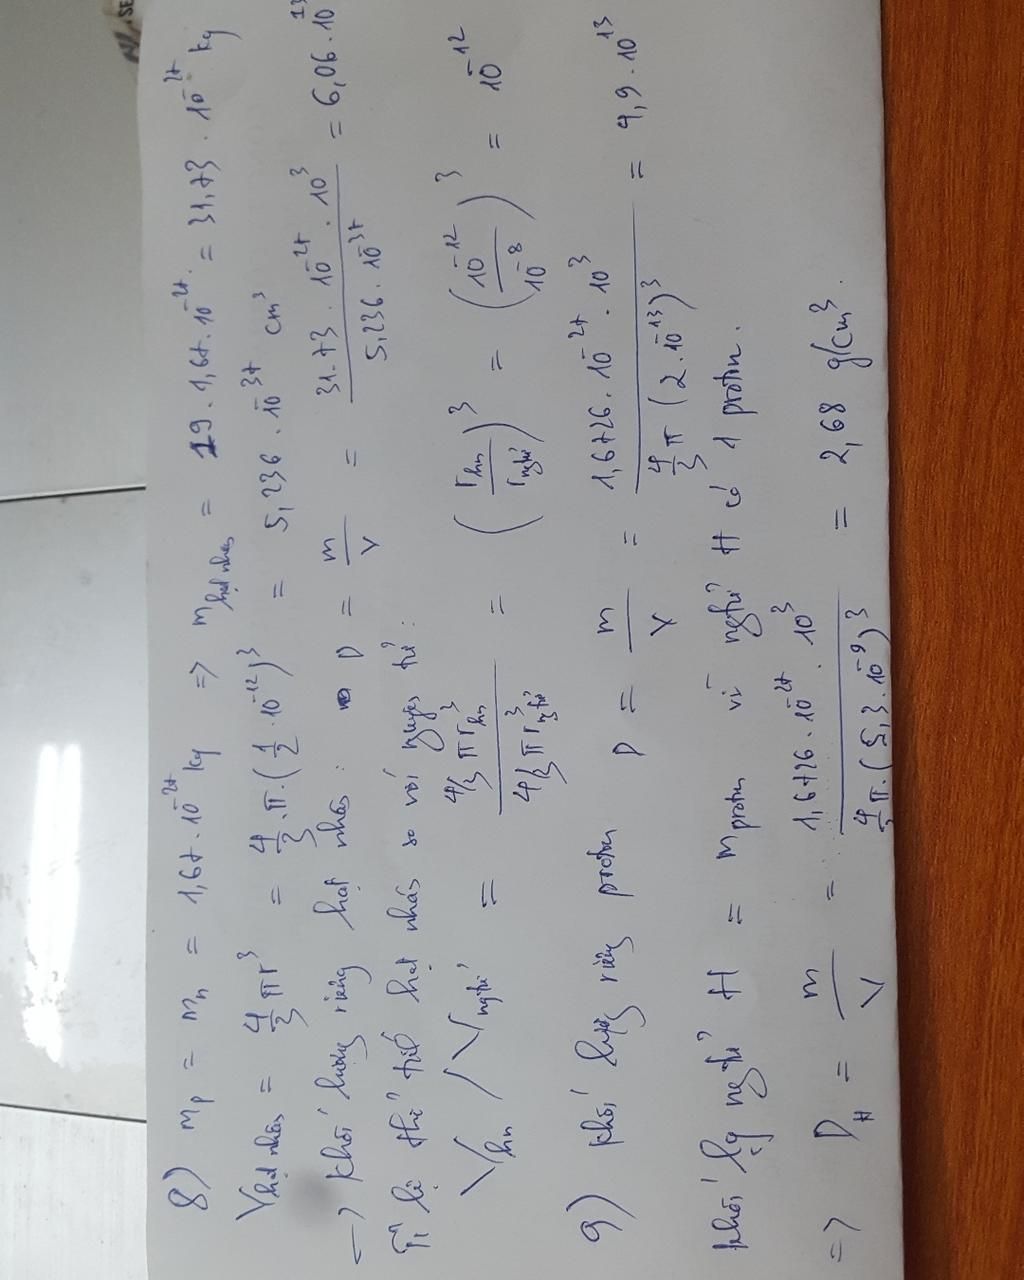 8) m_p = m_n = 1,67.10^-27 kg => m_hạt nhân = 19.1,67.10^-27 = 31,73.10^-27 kg
V_hạt nhân = 4/3 πr^3 = 4/3.π.(1/2.10^-12)^3 = 5,236.10^-37 cm^3
→ khối lượng riêng hạt nhân: D = m/V = 31,73.10^-27.10^3 / 5,236.10^-37 = 6,06.10^13
Tỉ lệ thể tích hạt nhân so với nguyên tử:
V_hn / V_ngtử = 4/3 πr_hn^3 / 4/3 πr_ngtử^3 = (r_hn / r_ngtử)^3 = (10^-12 / 10^-8)^3 = 10^-12
9) khối lượng riêng proton D = m/V = 1,6726.10^-27.10^3 / 4/3 π(2.10^-13)^3 = 4,9.10^13
khối lg ngtử H = m_proton vì ngtử H có 1 proton.
=> D_H = m/V = 1,6726.10^-27.10^3 / 4/3 π.(5,3.10^-9)^3 = 2,68 g/cm^3.